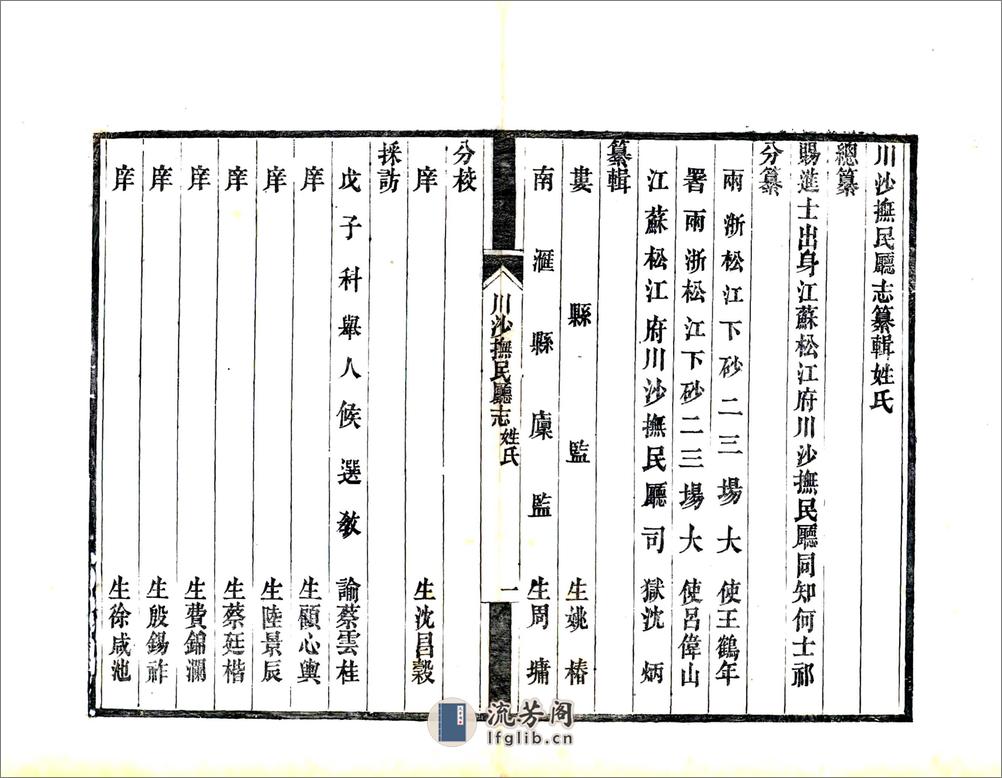 川沙撫民廳志纂輯姓氏
總纂
賜進士出身江蘇松江府川沙撫民廳同知何士祁
分纂
兩浙松江下砂二三場大使王鶴年
署兩浙松江下砂二三場大使呂偉山
江蘇松江府川沙撫民廳司獄沈炳
纂輯
婁縣監生姚椿
南滙縣廩監生周墉
川沙撫民廳志 姓氏 一
分校
庠生沈昌穀
採訪
戊子科舉人候選教諭蔡雲桂
庠生顧心輿
庠生陸景辰
庠生蔡廷楷
庠生費錦瀾
庠生殷錫祚
庠生徐咸池
流芳阁
lfglib.cn